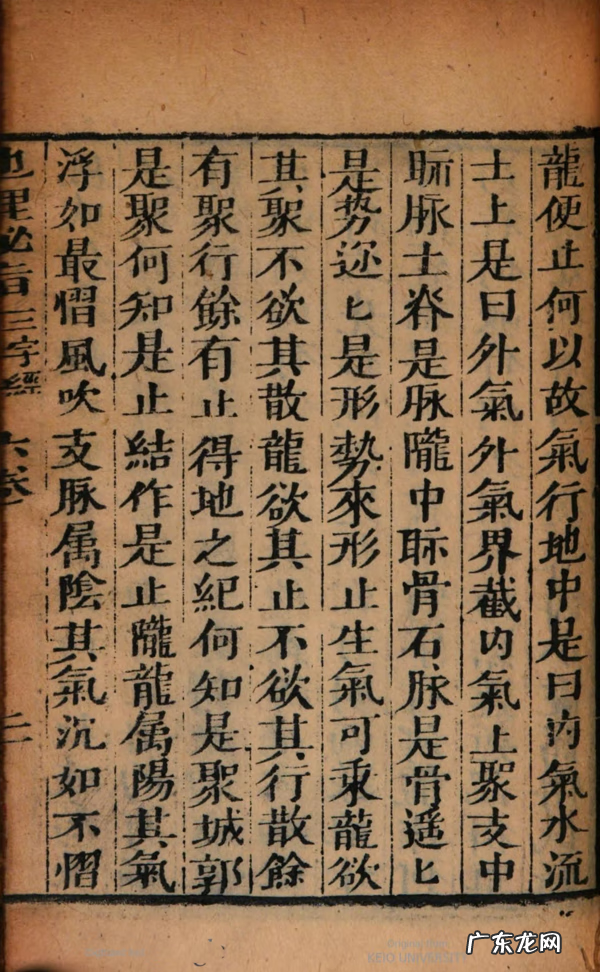 龍便止何以故氣行地中是曰內氣水流
土上是曰外氣外氣界截內氣上聚支中
眎脉土脊是脉隴中眎骨石脉是骨遥匕
是势迩匕是形勢來形止生氣可乘龍欲
其聚不欲其散龍欲其止不欲其行散餘
有聚行餘有止得地之紀何知是聚城郭
是聚何知是止結作是止隴龍属陽其氣
浮如最慴風吹支脉属陰其氣沉如不慴
地理必旨三字經 六卷 二
KEIO UNIVERSITY
广东龙网